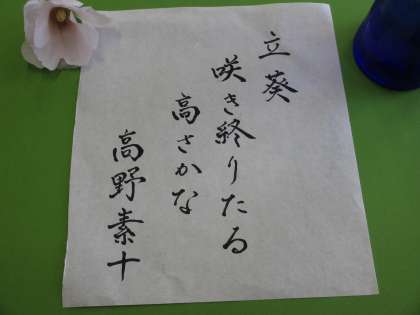 立葵
咲き終りたる
高さかな
高野素十